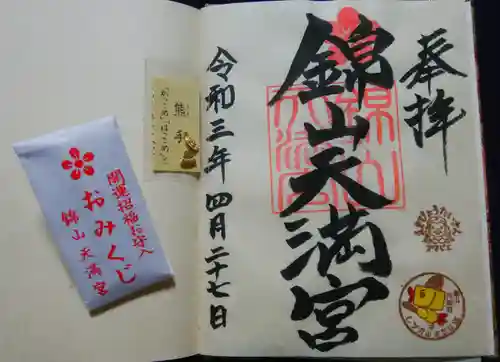 奉拝
錦山天満宮
令和三年四月二十七日
熊手
開運招福お守入
おみくじ
錦山天満宮